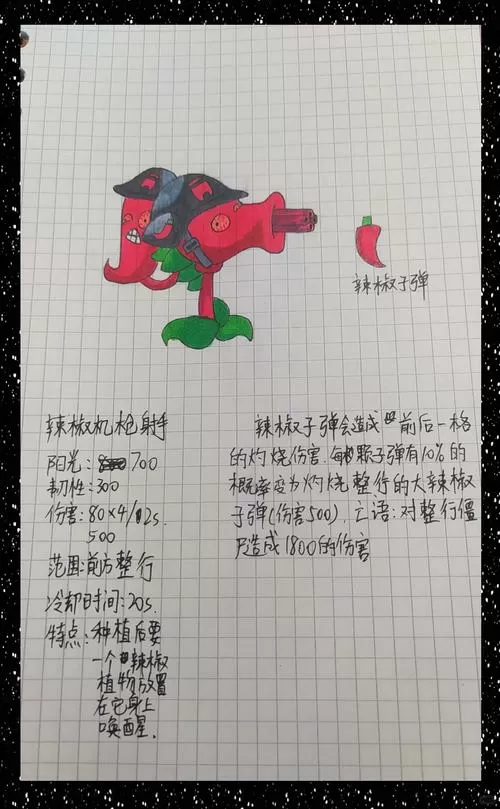 辣椒子弹
辣椒机枪射手
阳光:700
韧性:300
伤害:80×4/2s.
500
范围:前方整行
冷却时间:20s.
特点:种植后要
一个辣椒
植物放置
在它身上
唤醒.
辣椒子弹会造成前后一格
的灼烧伤害.每颗子弹有10%的
概率变为灼烧整行的大辣椒
子弹(伤害500),亡语:对整行僵
尸造成1800的伤害